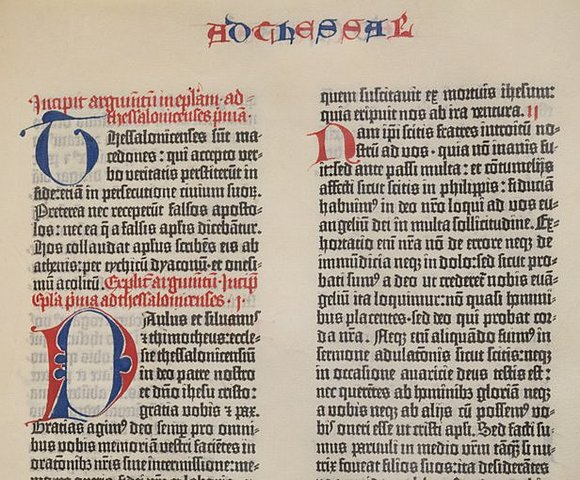 AD THESSAL
Incipit argumētū in eplam ad
thessalonicenses pma.
Thessalonicenses sūt ma-
cedones: qui accepto ver-
bo veritatis perstiterūt in
fide: etiā in persecutione civium suoꝝ.
Preterea nec receperūt falsos aposto-
los: nec ea q̄ a falsis ap̄lis dicebātur.
Hos collaudat ap̄lus scribēs eis ab
athenis: per tychicū dyaconū et onesi-
mū acolitū. Explic̄ argumētū. Incip̄
Epl̄a p̄ma ad thessalonicenses. I.
Paulus et siluanus
⁊ thimotheus: eccle-
sie thessalonicensiū
in deo patre nostro
et dn̄o ihesu cristo:
gratia vobis ⁊ pax.
Gratias agimꝰ deo semp pro omni-
bus vobis memoriā vestri faciētes in
orationibꝫ nr̄is sine intermissione: me-
quem suscitavit ex mortuis ihesum:
quia eripuit nos ab ira ventura. II
Nam ip̄i scitis fratres introitū no-
strū ad vos: quia nō inanis fu-
it: sed ante passi multa: et cōtumelijs
affecti sicut scitis in philippis: fiduciā
habuimꝰ in deo nr̄o loqui ad vos eu-
angeliū dei in multa sollicitudine. Ex-
hortatio eni nr̄a nō de errore neqꝫ de
immūdicia neqꝫ in dolo: sed sicut pro-
bati sumꝰ a deo ut crederet nobis euā-
geliū ita loquimur: nō quasi homini-
bus placentes. sed deo qui probat cor-
da nr̄a. Neqꝫ eni aliquādo fuimꝰ in
sermone adulatōnis sicut scitis: neqꝫ
in occasione auaricie deus testis est:
nec querētes ab hominibꝫ gloriā neqꝫ
a vobis neqꝫ ab alijs cū possemꝰ vo-
bis oneri esse ut cristi ap̄li. Sed facti su-
mus parvuli in medio vr̄m tāq̄ si nu-
trix foveat filios suos: ita desiderātes